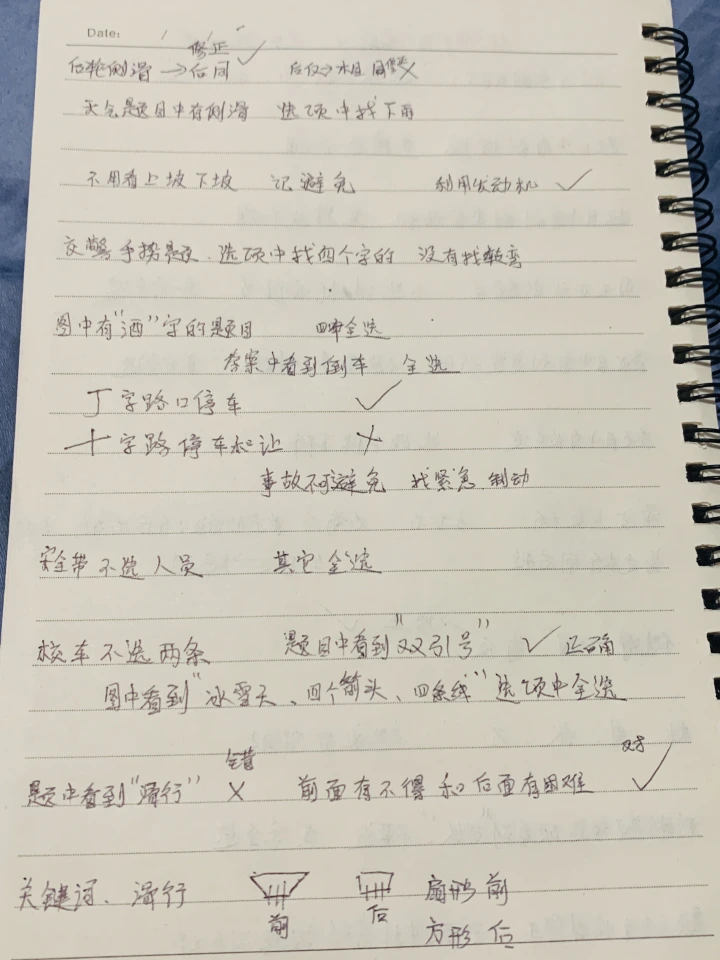 Date: / /
修正
后轮侧滑→后同 ✓ 后仅→相 ×
天气题目中有侧滑 选项中找下雨
不用看上坡下坡 记避免 利用发动机 ✓
交警手势题 . 选项中找四个字的 没有找转弯
图中有“酒”字的题目 四全选
答案中看到倒车 全选
丁字路口停车 ✓
十字路停车和让 ×
事故不可避免 找紧急制动
安全带不选人员 其它全选
校车不选两条 题目中看到“双引号” ✓ 正确
图中看到“冰雪天、四个箭头、四条线”选项中全选
错 对
题中看到“滑行” × 前面有不得和后面有困难 ✓
关键词、滑行 前 后 扇形前
方形后